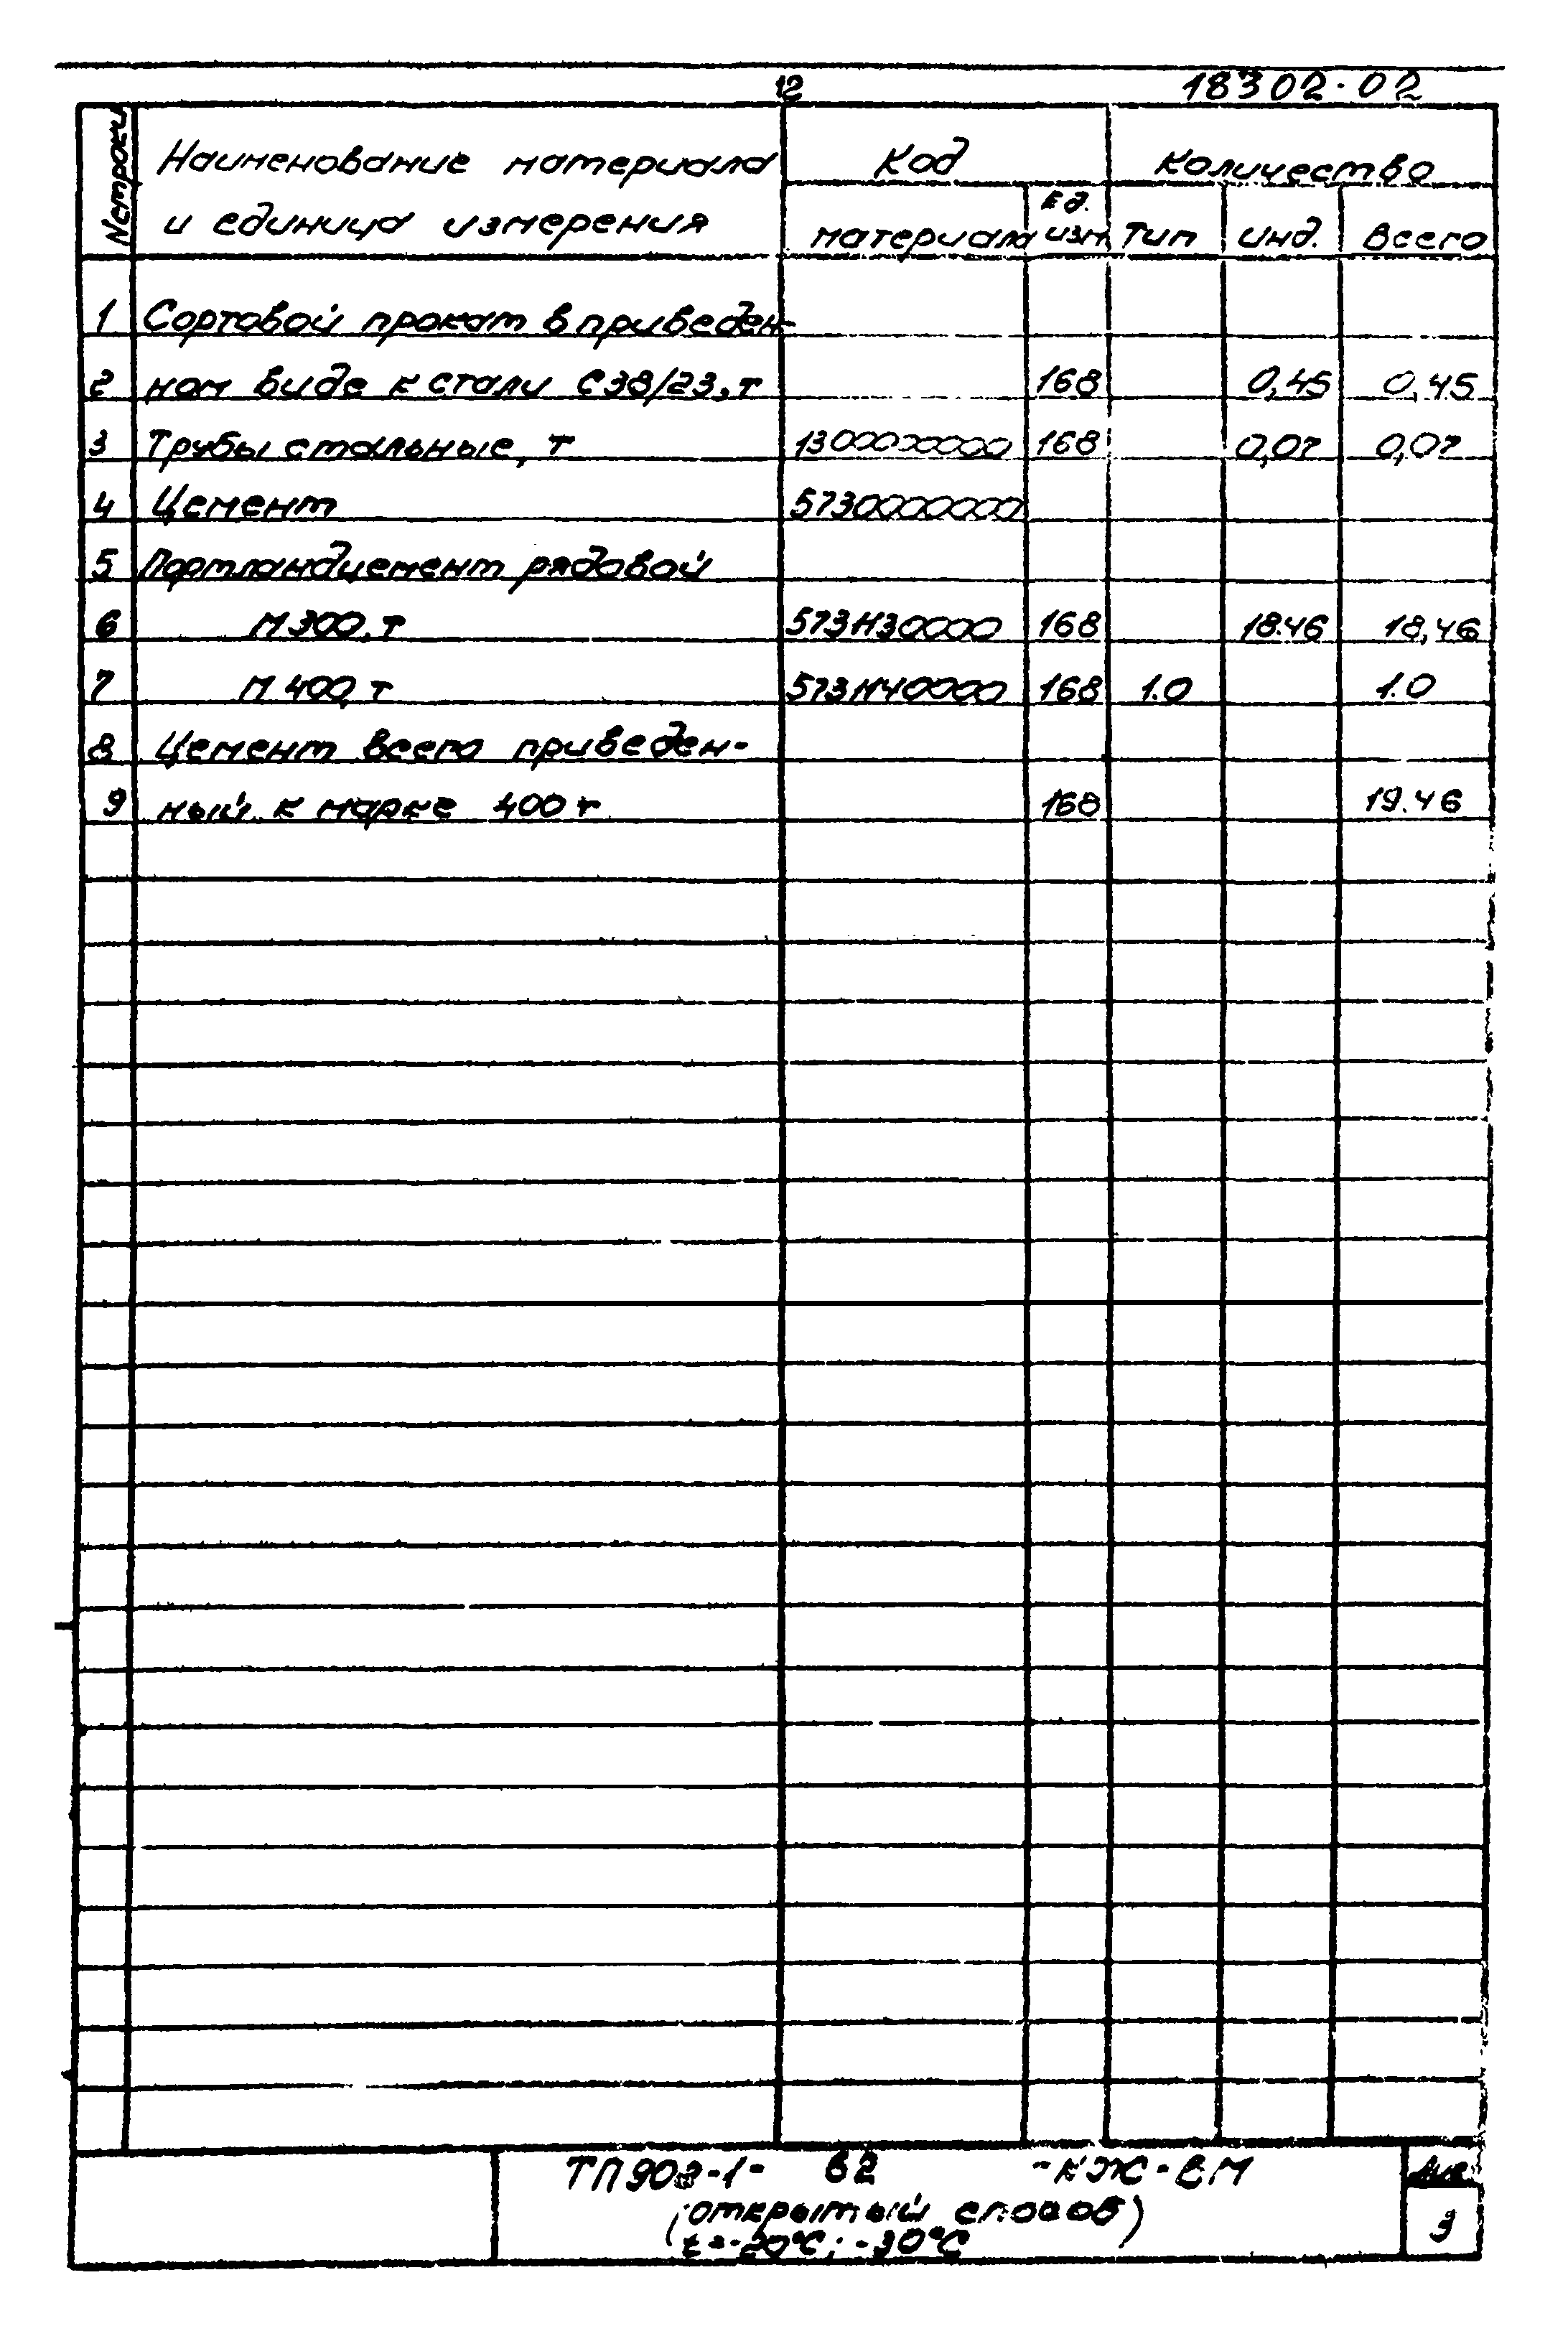 12 18302-02
№ строки Наименование материала и единица измерения Код Количество
материала Ед. изм Тип инд. Всего
1 Сортовой прокат в приведен-
2 ном виде к стали С38/23, т 168 0,45 0,45
3 Трубы стальные, т 1300000000 168 0,07 0,07
4 Цемент 5730000000
5 Портландцемент рядовой
6 М 300, т 573Н30000 168 18.46 18,46
7 М 400, т 573Н40000 168 1.0 1.0
8 Цемент всего приведен-
9 ный к марке 400 т 168 19.46
ТП 902-1- 62 -КЖ-ВМ
(открытый способ)
t=-20°С; -30°С
3